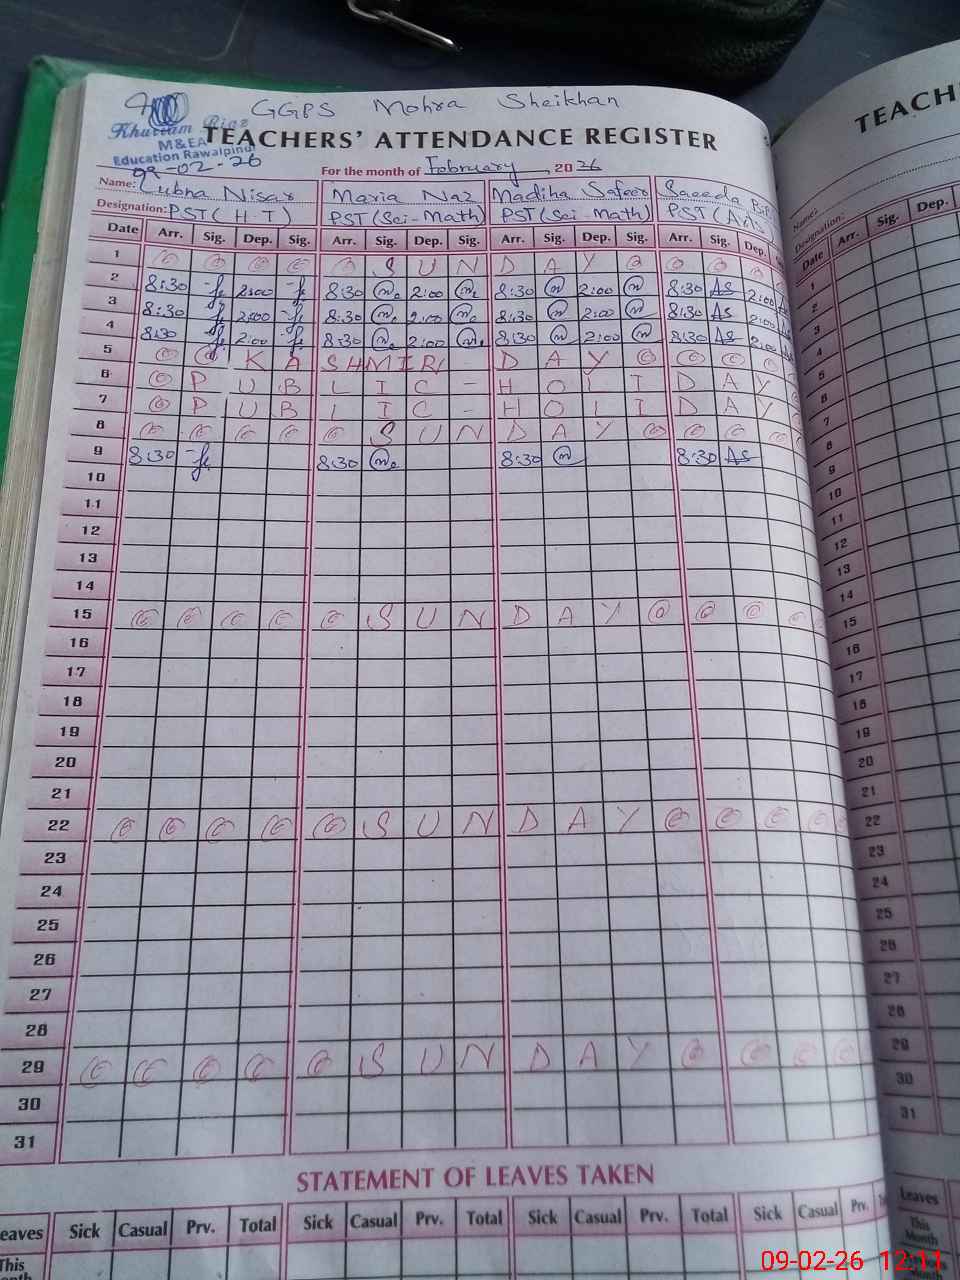 GGPS Mohra Sheikhan
Khurram Riaz
M&EA
Education Rawalpindi
09-02-26
TEACHERS' ATTENDANCE REGISTER
For the month of February 2026
Name: Lubna Nisar Maria Naz Madiha Safeer Saeeda
Designation: PST (H.T) PST (Sci-Math) PST (Sci-Math) PST (Arts
Date Arr. Sig. Dep. Sig. Arr. Sig. Dep. Sig. Arr. Sig. Dep. Sig. Arr. Sig. Dep.
1 SUNDAY
2 8:30 2:00 8:30 2:00 8:30 2:00 8:30 AS 2:00
3 8:30 2:00 8:30 2:00 8:30 2:00 8:30 AS 2:00
4 8:30 2:00 8:30 2:00 8:30 2:00 8:30 AS 2:00
5 KASHMIR DAY
6 PUBLIC - HOLIDAY
7 PUBLIC - HOLIDAY
8 SUNDAY
9 8:30 8:30 8:30 8:30 AS
10
11
12
13
14
15 SUNDAY
16
17
18
19
20
21
22 SUNDAY
23
24
25
26
27
28
29 SUNDAY
30
31
STATEMENT OF LEAVES TAKEN
Leaves Sick Casual Prv. Total Sick Casual Prv. Total Sick Casual Prv. Total Sick Casual Prv.
This
TEACH
Name:
Designation:
Date Arr. Sig. Dep.
1
2
3
4
5
6
7
8
9
10
11
12
13
14
15
16
17
18
19
20
21
22
23
24
25
26
27
28
29
30
31
Leaves
This
Month
09-02-26 12:11